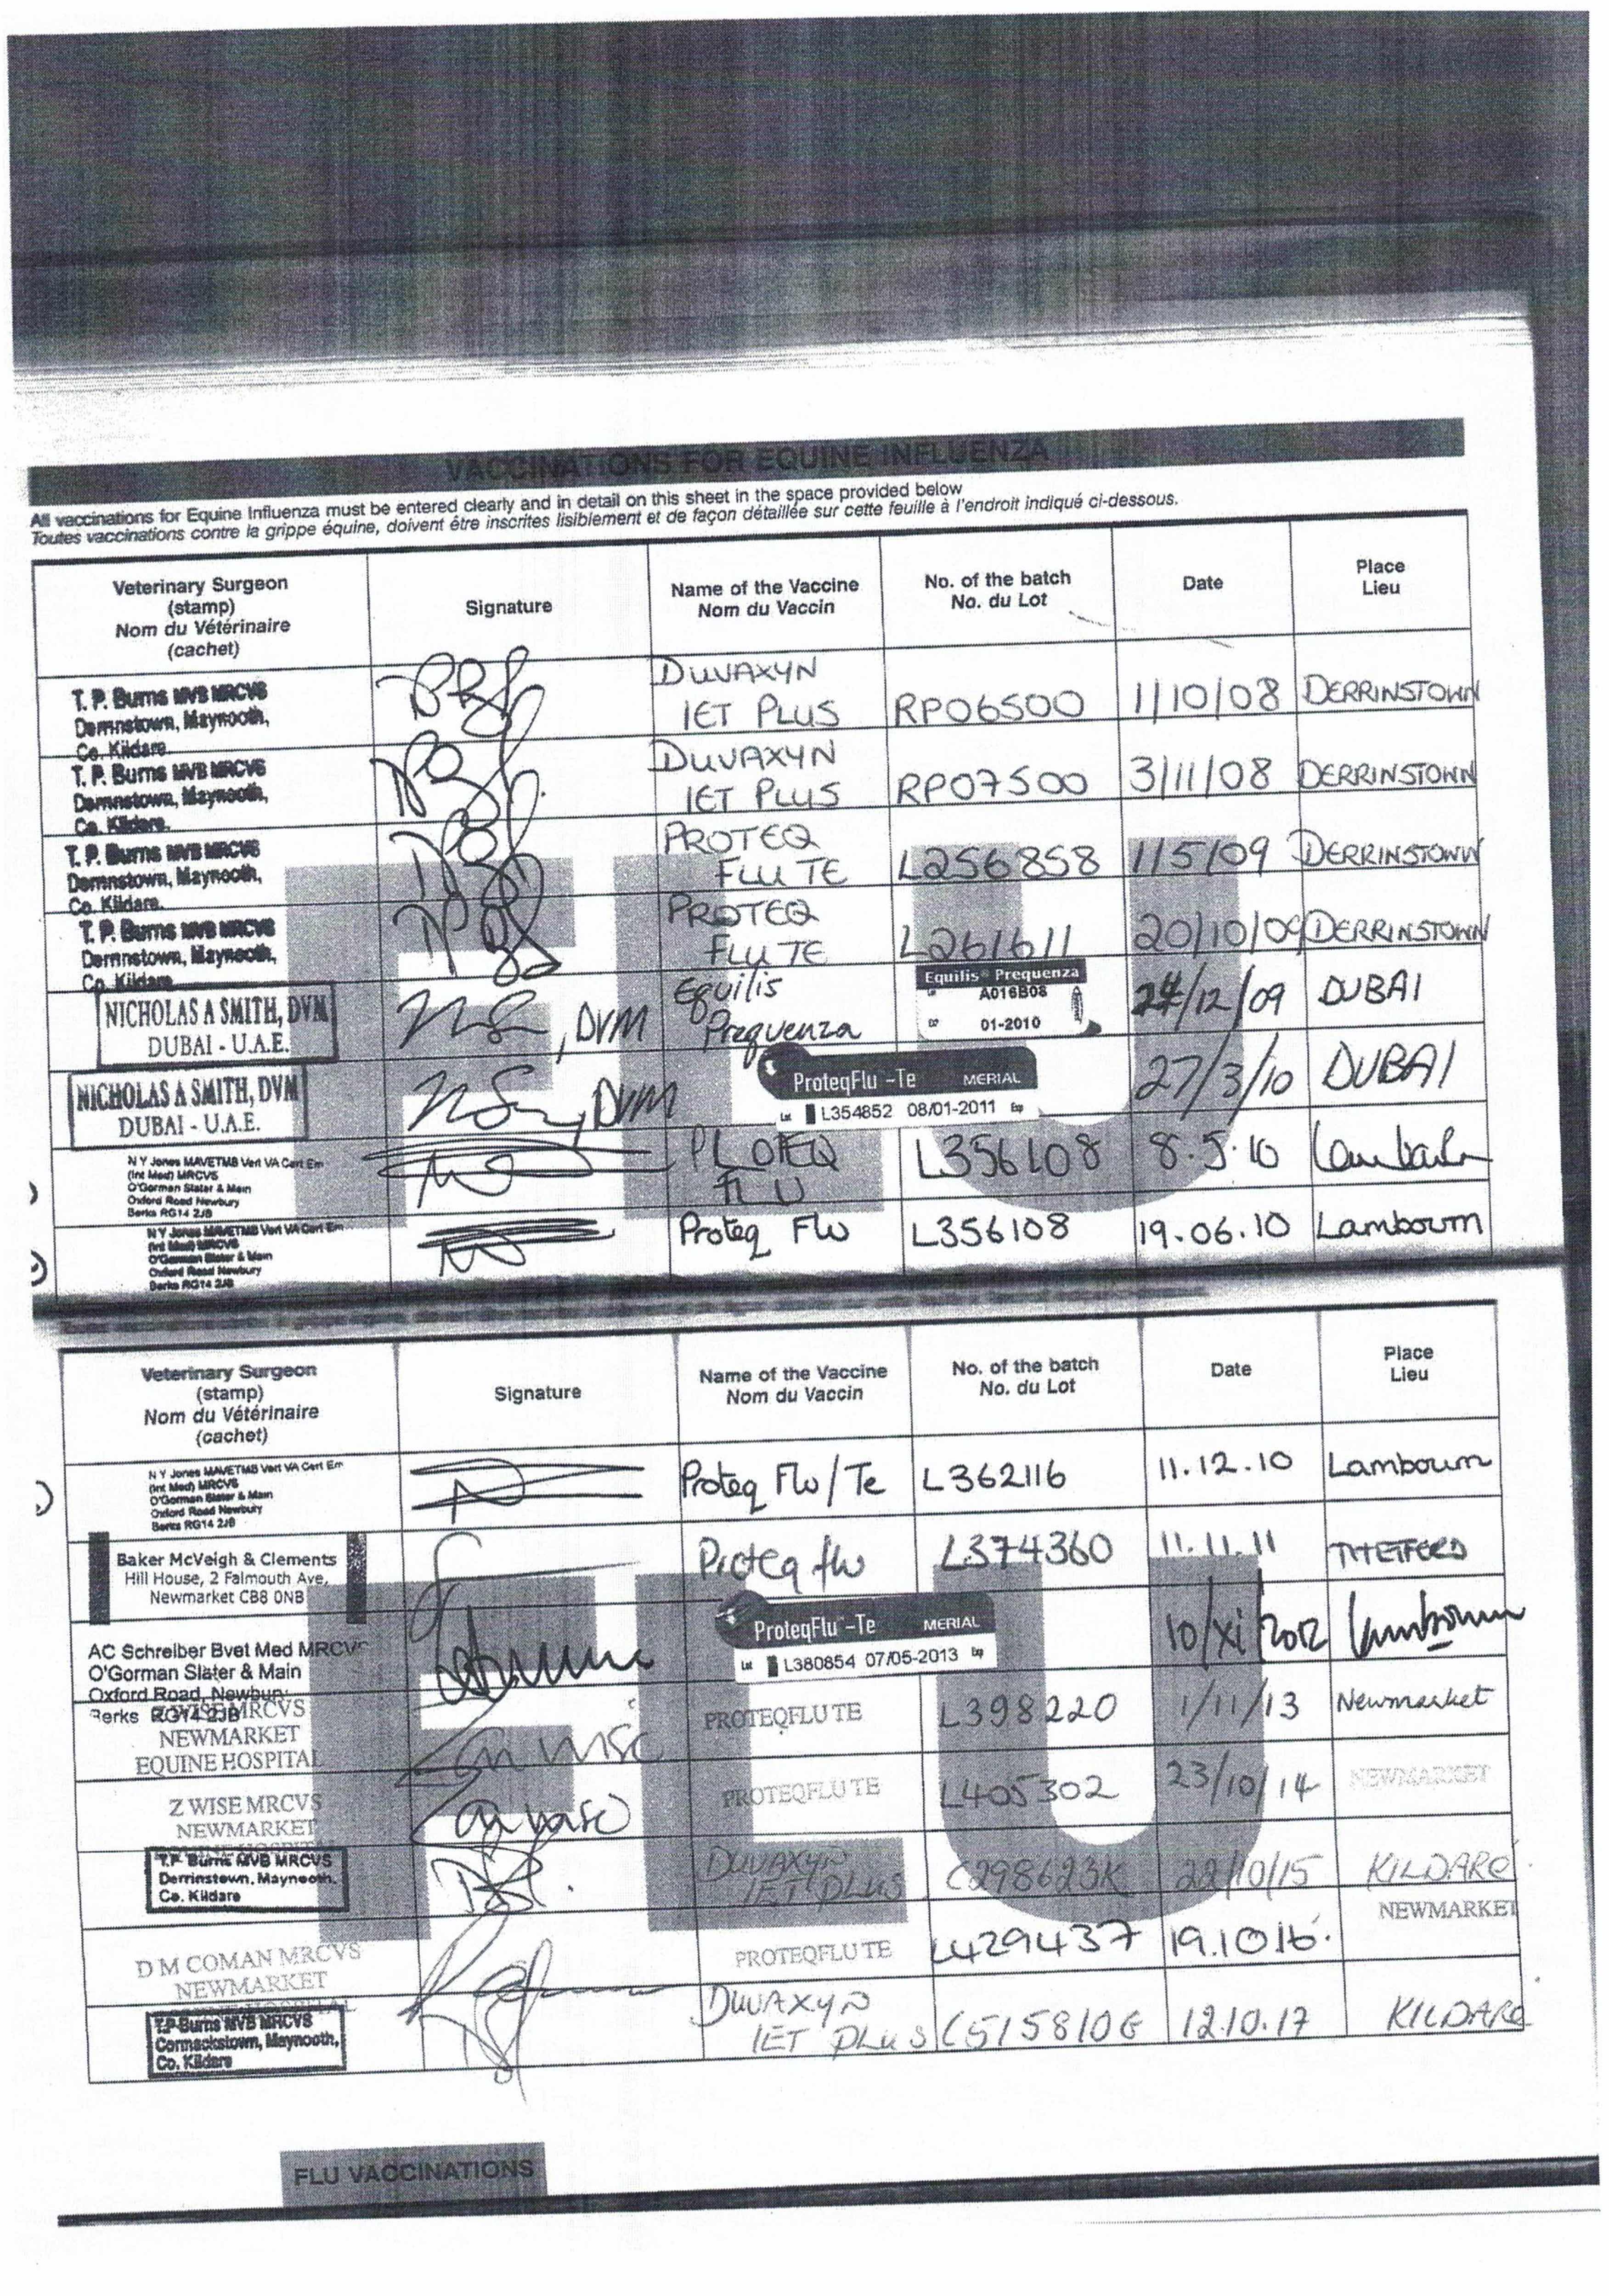 VACCINATIONS FOR EQUINE INFLUENZA
All vaccinations for Equine Influenza must be entered clearly and in detail on this sheet in the space provided below
Toutes vaccinations contre la grippe équine, doivent être inscrites lisiblement et de façon détaillée sur cette feuille à l'endroit indiqué ci-dessous.
Veterinary Surgeon
(stamp)
Nom du Vétérinaire
(cachet)
Signature
Name of the Vaccine
Nom du Vaccin
No. of the batch
No. du Lot
Date
Place
Lieu
T. P. Burns MVB MRCVS
Derrinstown, Maynooth,
Co. Kildare.
DUVAXYN
IET PLUS
RP06500
1/10/08
DERRINSTOWN
T. P. Burns MVB MRCVS
Derrinstown, Maynooth,
Co. Kildare.
DUVAXYN
IET PLUS
RP07500
3/11/08
DERRINSTOWN
T. P. Burns MVB MRCVS
Derrinstown, Maynooth,
Co. Kildare.
PROTEQ
FLU TE
L256858
1/5/09
DERRINSTOWN
T. P. Burns MVB MRCVS
Derrinstown, Maynooth,
Co. Kildare
PROTEQ
FLU TE
L261611
20/10/09
DERRINSTOWN
NICHOLAS A SMITH, DVM
DUBAI - U.A.E.
, DVM
Equilis
Prequenza
Equilis Prequenza
A016B08
01-2010
/12/09
DUBAI
NICHOLAS A SMITH, DVM
DUBAI - U.A.E.
, DVM
ProteqFlu -Te MERIAL
Lot L354852 08/01-2011 Exp
27/3/10
DUBAI
N Y Jones MAVETMB Vert VA Cert Em
(Int Med) MRCVS
O'Gorman Slater & Main
Oxford Road Newbury
Berks RG14 2JB
FLU
L356108
8.5.10
N Y Jones MAVETMB Vert VA Cert Em
(Int Med) MRCVS
O'Gorman Slater & Main
Oxford Road Newbury
Berks RG14 2JB
Proteq Flu
L356108
19.06.10
Lambourn
FLU
Veterinary Surgeon
(stamp)
Nom du Vétérinaire
(cachet)
Signature
Name of the Vaccine
Nom du Vaccin
No. of the batch
No. du Lot
Date
Place
Lieu
N Y Jones MAVETMB Vert VA Cert Em
(Int Med) MRCVS
O'Gorman Slater & Main
Oxford Road Newbury
Berks RG14 2JB
Proteq Flu/Te
L362116
11.12.10
Lambourn
Baker McVeigh & Clements
Hill House, 2 Falmouth Ave,
Newmarket CB8 0NB
Proteq flu
L374360
11.11.11
THETFORD
AC Schreiber Bvet Med MRCVS
O'Gorman Slater & Main
Oxford Road, Newbury
Berks RG14 2JB
ProteqFlu -Te MERIAL
Lot L380854 07/05-2013 Exp
10/xi/2012
Lambourn
Z WISE MRCVS
NEWMARKET
EQUINE HOSPITAL
PROTEQFLU TE
L398220
1/11/13
Newmarket
Z WISE MRCVS
NEWMARKET
PROTEQFLU TE
L405302
23/10/14
NEWMARKET
T.P Burns MVB MRCVS
Derrinstown, Maynooth,
Co. Kildare
DUVAXYN
IET PLUS
C298623K
22/10/15
KILDARE
D M COMAN MRCVS
NEWMARKET
PROTEQFLU TE
L429437
19.10 16.
NEWMARKET
T.P Burns MVB MRCVS
Cormackstown, Maynooth,
Co. Kildare
DUVAXYN
IET PLUS
C515810G
12.10.17
KILDARE
FLU
FLU VACCINATIONS